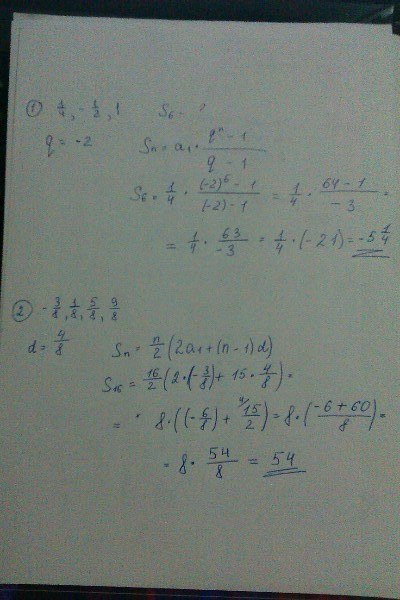 ① 1/4, -1/2, 1 S₆ - ?
q = -2 Sₙ = a₁ · (qⁿ - 1)/(q - 1)
S₆ = 1/4 · ((-2)⁶ - 1)/((-2) - 1) = 1/4 · (64 - 1)/(-3) =
= 1/4 · 63/(-3) = 1/4 · (-21) = -5 1/4
② -3/8, 1/8, 5/8, 9/8
d = 4/8 Sₙ = n/2 (2a₁ + (n - 1)d)
S₁₆ = 16/2 (2 · (-3/8) + 15 · 4/8) =
= 8 · ((-6/8) + ⁴/15/2) = 8 · ((-6 + 60)/8) =
= 8 · 54/8 = 54